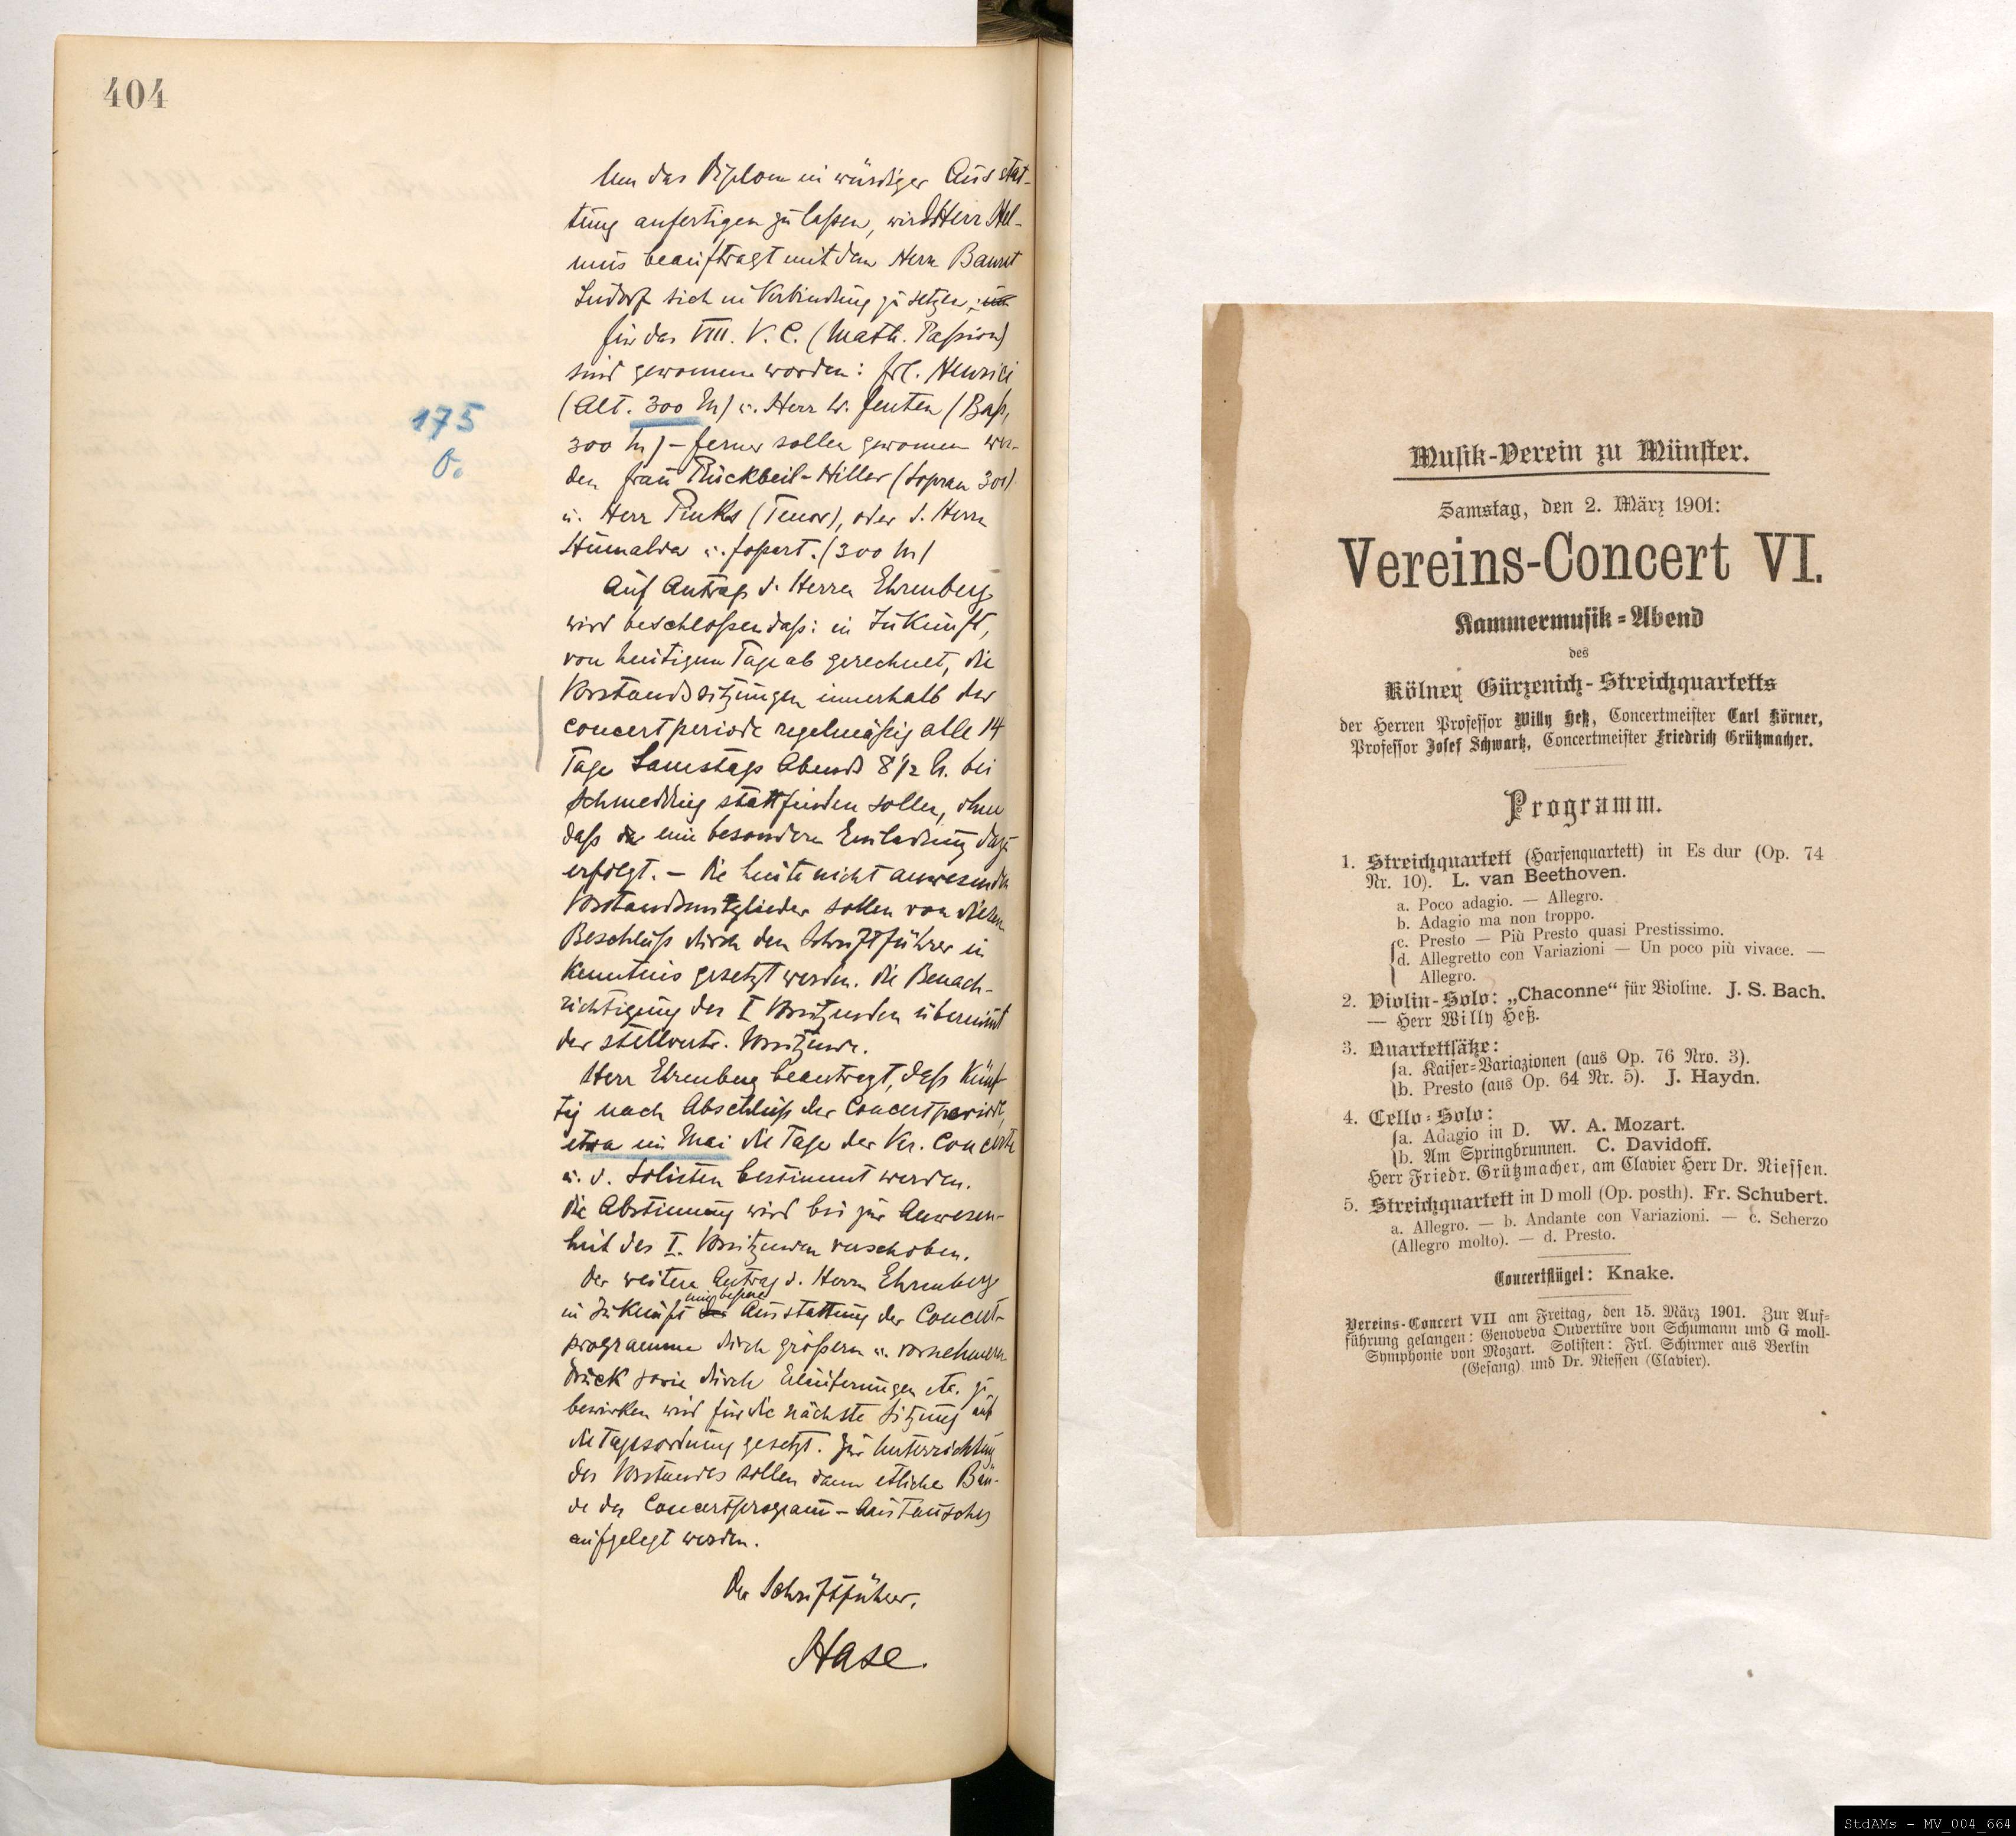 404
Um das Diplom in würdiger Ausstat-
tung anfertigen zu laßen, wird Herr Hel-
mus beauftragt mit dem Herrn Baurat
Ludorf sich in Verbindung zu setzen;
für das VIII. V. C. (Math. Paßion)
sind gewonnen worden: Frl. Henrici
(Alt. 300 M) u. Herr W. Fenten (Baß,
300 M) – ferner sollen gewonnen wer-
den Frau Rückbeil-Hiller (Sopran 300)
u. Herr Pinks (Tenor), oder d. Herrn
u. (300 M)
175
Auf Antrag d. Herrn Ehrenberg
wird beschloßen daß: in Zukunft,
von heutigem Tage ab gerechnet, die
Vorstandssitzungen innerhalb der
Concertperiode regelmäßig alle 14
Tage Samstags Abends 8 1/2 h. bei
Schmedding stattfinden sollen, ohne
daß eine besondere Einladung dazu
erfolgt. – Die heute nicht anwesenden
Vorstandsmitglieder sollen von diesem
Beschluß durch den Schriftführer in
Kenntnis gesetzt werden. Die Benach-
richtigung des I Vorsitzenden übernimt
der stellvertr. Vorsitzende.
Herr Ehrenberg beantragt, daß künf-
tig nach Abschluß der Concertperiode,
etwa im Mai die Tage der Ver. Concerte
u. d. Solisten bestimmt werden.
Die Abstimung wird bis zur Anwesen-
heit des I. Vorsitzenden verschoben.
Der weitere Antrag d. Herrn Ehrenberg
in Zukunft eine bessere Ausstattung der Concert-
programme durch größeren u. vornehmeren
Druck sowie durch Erläuterungen etc. zu
bewirken wird für die nächste Sitzung auf
die Tagesordnung gesetzt. Zur Unterrichtung
des Vorstandes sollen dann etliche Bän-
de des Concertprogram-Austausches
aufgelegt werden.
Der Schriftführer.
Hase.
Musik-Verein zu Münster.
Samstag, den 2. März 1901:
Vereins-Concert VI.
Kammermusik-Abend
des
Kölner Gürzenich-Streichquartetts
der Herren Professor Willy Heß, Concertmeister Carl Körner,
Professor Josef Schwartz, Concertmeister Friedrich Grützmacher.
Programm.
1. Streichquartett (Harfenquartett) in Es dur (Op. 74
Nr. 10). L. van Beethoven.
a. Poco adagio. — Allegro.
b. Adagio ma non troppo.
c. Presto — Più Presto quasi Prestissimo.
d. Allegretto con Variazioni — Un poco più vivace. —
Allegro.
2. Violin-Solo: „Chaconne“ für Violine. J. S. Bach.
— Herr Willy Heß.
3. Quartettsätze:
a. Kaiser-Variazionen (aus Op. 76 Nro. 3).
b. Presto (aus Op. 64 Nr. 5). J. Haydn.
4. Cello-Solo:
a. Adagio in D. W. A. Mozart.
b. Am Springbrunnen. C. Davidoff.
Herr Friedr. Grützmacher, am Clavier Herr Dr. Niessen.
5. Streichquartett in D moll (Op. posth). Fr. Schubert.
a. Allegro. — b. Andante con Variazioni. — c. Scherzo
(Allegro molto). — d. Presto.
Concertflügel: Knake.
Vereins-Concert VII am Freitag, den 15. März 1901. Zur Auf-
führung gelangen: Genoveva Ouvertüre von Schumann und G moll-
Symphonie von Mozart. Solisten: Frl. Schirmer aus Berlin
(Gesang) und Dr. Niessen (Clavier).
StdAMs - MV_004_664